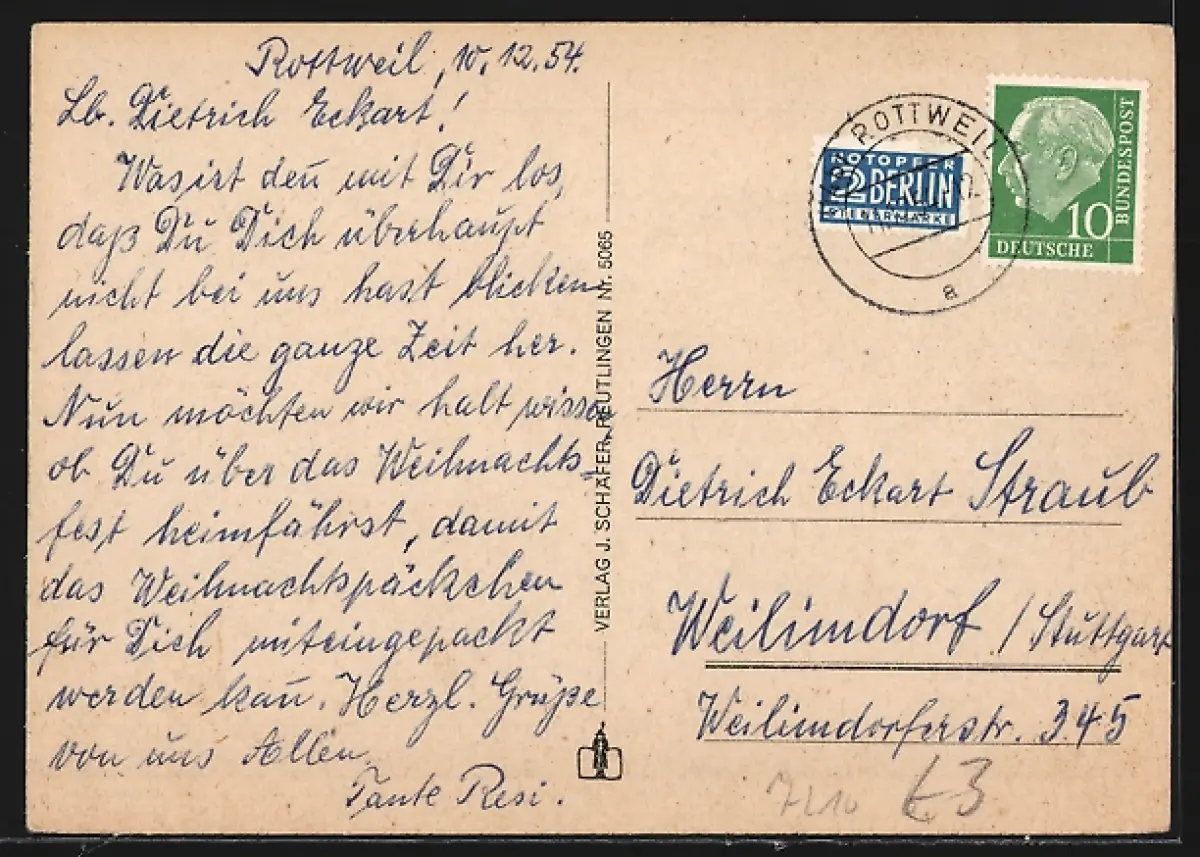 Rottweil, 10.12.54.
Lb. Dietrich Eckart!
Was ist deñ mit Dir los,
daß Du Dich überhaupt
nicht bei uns hast blicken
lassen die ganze Zeit her.
Nun möchten wir halt wissen
ob Du über das Weihnachts-
fest heimfährst, damit
das Weihnachtspäckchen
für Dich miteingepackt
werden kañ. Herzl. Grüße
von uns Allen
Tante Resi.
VERLAG J. SCHÄFER, REUTLINGEN NR. 5065
ROTTWEIL
a
NOTOPFER
2 BERLIN
STEUERMARKE
10
DEUTSCHE
BUNDESPOST
Herrn
Dietrich Eckart Straub
Weilimdorf / Stuttgart
Weilimdorferstr. 345
7210
£3